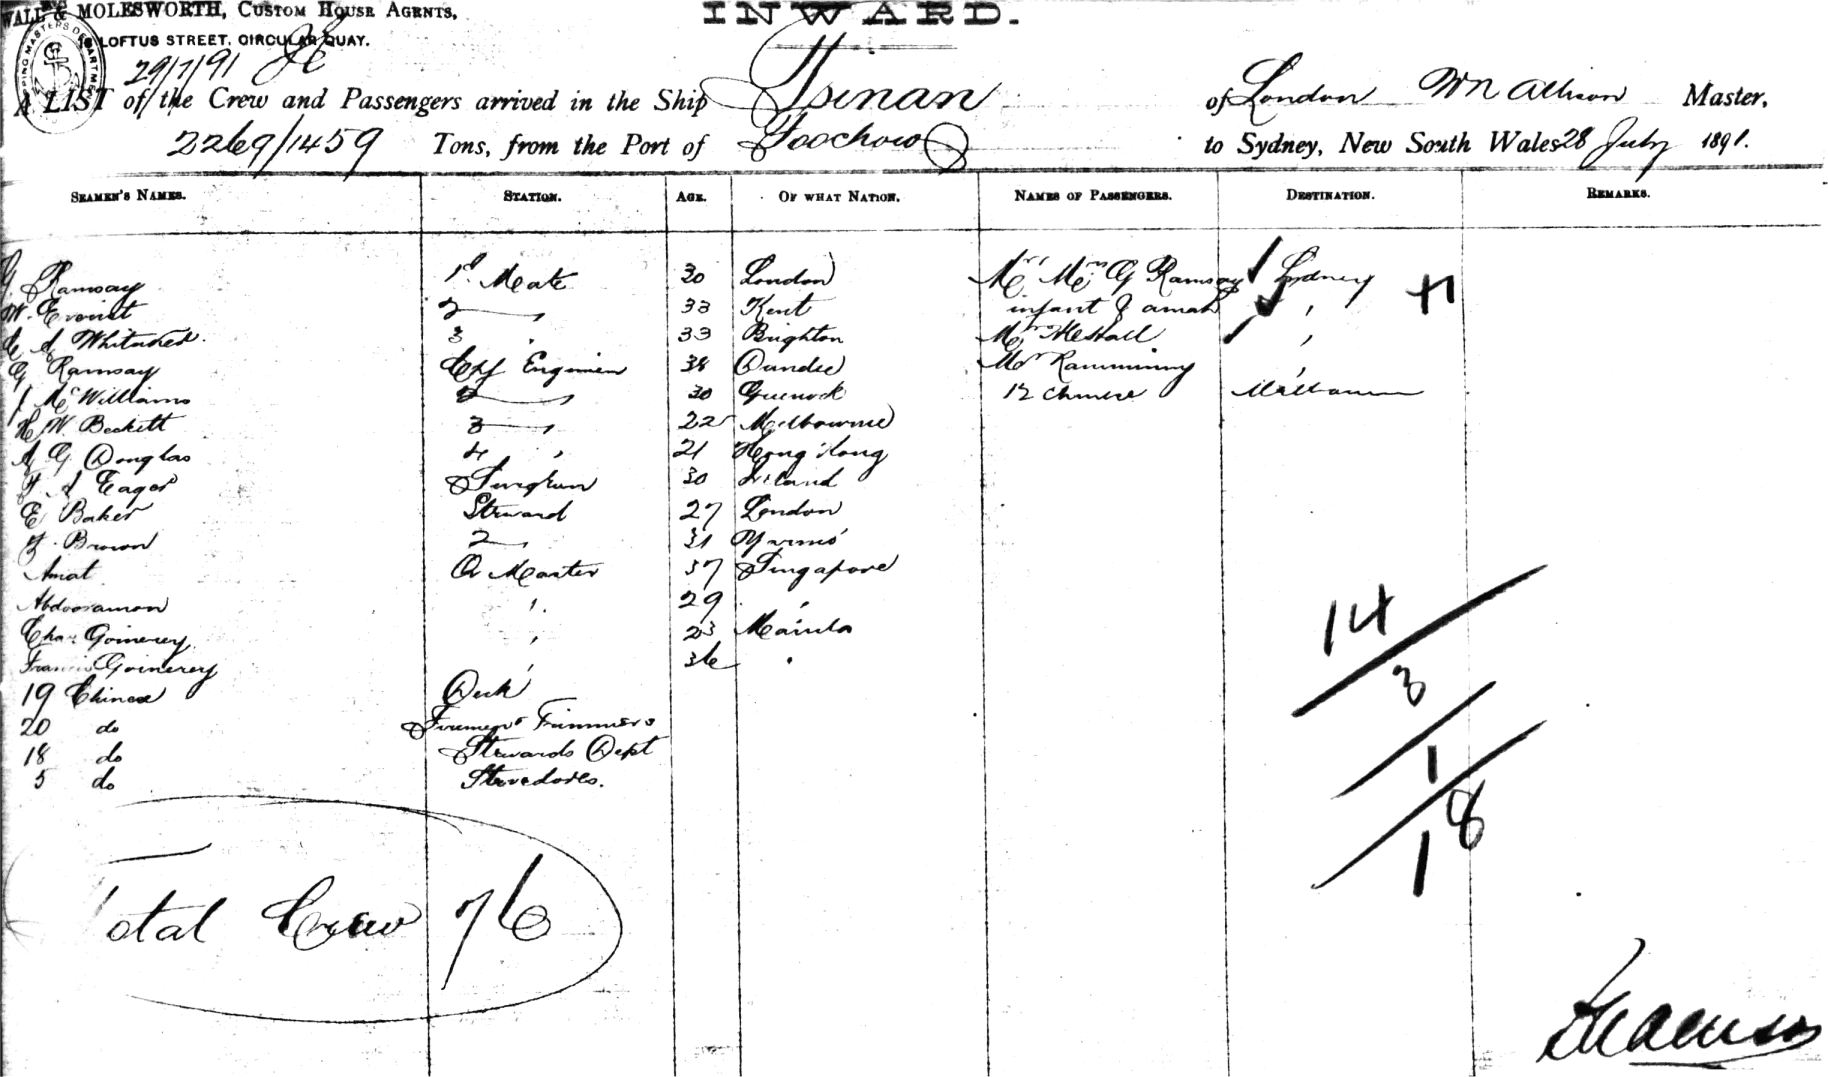 WALL & MOLESWORTH, CUSTOM HOUSE AGENTS,
LOFTUS STREET, CIRCULAR QUAY.
INWARD.
29/7/91
A LIST of the Crew and Passengers arrived in the Ship Tsinan of London Wm Allison Master,
2269/1459 Tons, from the Port of Foochow to Sydney, New South Wales 28 July 1891.
SEAMEN'S NAMES. STATION. AGE. OF WHAT NATION. NAMES OF PASSENGERS. DESTINATION. REMARKS.
G. Ramsay 1st Mate 30 London Mr Mrs G Ramsay Sydney
W. Everist 2 " 33 Kent infant & amah "
A Whitehed 3 " 33 Brighton Meshall "
G Ramsay Chf Engineer 38 Dundee Mr "
J McWilliams 2 " 30 Greenock 12 Chinese Melbourne
H W. Beckett 3 " 22 Melbourne
A G Douglas 4 " 21 Hong Kong
F A Eager Surgeon 30 Ireland
E Baker Steward 27 London
Brown 2 " 31
Amat Qr Master 37 Singapore
Abdooramon " 29 "
Chas Goinerey " 23 Manila
Francis Goinerey " 36 "
19 Chinese Deck
20 do Firemen & Trimmers
18 do Stewards Dept
5 do Stevedores.
Total Crew 76
14
3
1
18